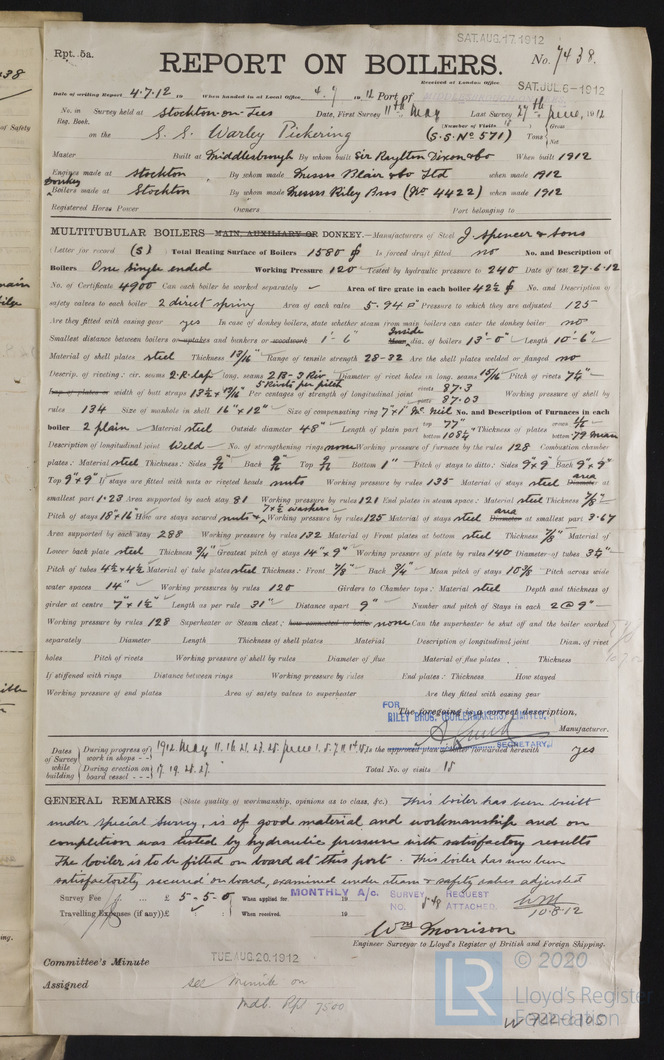 SAT. AUG. 17. 1912
Rpt. 5a.
REPORT ON BOILERS.
No. 7438.
Received at London Office
SAT. JUL. 6 - 1912
Date of writing Report 4.7.12 19 When handed in at Local Office 4.7 19 12 Port of
No. in Reg. Book. Survey held at Stockton-on-Tees Date, First Survey 11th May Last Survey 27th June, 1912
on the S.S. Warley Pickering (Number of Visits 18) (S.S. No 571) Tons Gross Net
Master Built at Middlesbrough By whom built Sir Raylton Dixon & Co When built 1912
Engines made at Stockton By whom made Messrs Blair & Co Ltd when made 1912
Donkey Boilers made at Stockton By whom made Messrs Riley Bros (No 4422) when made 1912
Registered Horse Power Owners Port belonging to
MULTITUBULAR BOILERS MAIN, AUXILIARY OR DONKEY.—Manufacturers of Steel J. Spencer & Sons
(Letter for record (S)) Total Heating Surface of Boilers 1580 Is forced draft fitted no No. and Description of
Boilers One single ended Working Pressure 120 Tested by hydraulic pressure to 240 Date of test 27.6.12
No. of Certificate 4900 Can each boiler be worked separately Area of fire grate in each boiler 42½ No. and Description of
safety valves to each boiler 2 direct spring Area of each valve 5.94 Pressure to which they are adjusted 125
Are they fitted with easing gear yes In case of donkey boilers, state whether steam from main boilers can enter the donkey boiler no
Smallest distance between boilers or uptakes and bunkers or woodwork 1'-6" Inside dia. of boilers 13'-0" Length 10'-6"
Material of shell plates steel Thickness 13/16" Range of tensile strength 28-32 Are the shell plates welded or flanged no
Descrip. of riveting: cir. seams 2.R. lap long. seams 2B-3 Riv 5 Rivets per pitch Diameter of rivet holes in long. seams 15/16 Pitch of rivets 7¼"
Lap of plates or width of butt straps Per centages of strength of longitudinal joint rivets 87.3 plate 87.03 Working pressure of shell by
rules 134 Size of manhole in shell 16" × 12" Size of compensating ring 7" × 1" McNeil No. and Description of Furnaces in each
boiler 2 plain Material steel Outside diameter 48" Length of plain part top 77" bottom Thickness of plates crown bottom
Description of longitudinal joint Weld No. of strengthening rings none Working pressure of furnace by the rules 128 Combustion chamber
plates: Material steel Thickness: Sides 9/16" Back 9/16" Top 9/16 Bottom 1" Pitch of stays to ditto: Sides 9" × 9" Back 9" × 9"
Top 9" × 9" If stays are fitted with nuts or riveted heads nuts Working pressure by rules 135 Material of stays steel area Diameter at
smallest part 1.23 Area supported by each stay 81 Working pressure by rules 121 End plates in steam space: Material steel Thickness 7/8"
Pitch of stays 18" × 16" How are stays secured nuts & washers Working pressure by rules 125 Material of stays steel area Diameter at smallest part 3.67
Area supported by each stay 288 Working pressure by rules 132 Material of Front plates at bottom steel Thickness 7/8" Material of
Lower back plate steel Thickness ¾" Greatest pitch of stays 14" × 9" Working pressure of plate by rules 140 Diameter of tubes 3¼"
Pitch of tubes 4½ × 4½ Material of tube plates steel Thickness: Front 7/8" Back ¾" Mean pitch of stays 10 3/8 Pitch across wide
water spaces 14" Working pressures by rules 120 Girders to Chamber tops: Material steel Depth and thickness of
girder at centre 7" × 1½" Length as per rule 31" Distance apart 9" Number and pitch of Stays in each 2 @ 9"
Working pressure by rules 128 Superheater or Steam chest; how connected to boiler none Can the superheater be shut off and the boiler worked
separately Diameter Length Thickness of shell plates Material Description of longitudinal joint Diam. of rivet
holes Pitch of rivets Working pressure of shell by rules Diameter of flue Material of flue plates Thickness
If stiffened with rings Distance between rings Working pressure by rules End plates: Thickness How stayed
Working pressure of end plates Area of safety valves to superheater Are they fitted with easing gear
The foregoing is a correct description,
FOR RILEY BROS. (BOILERMAKERS) LIMITED,
SECRETARY.
Manufacturer.
Dates of Survey while building During progress of work in shops - - 1912 May 11. 16. 21. 23. 28. June 1. 5. 7. 11. 14. 15 Is the approved plan of boiler forwarded herewith yes
During erection on board vessel - - - 17. 19. 25. 27. Total No. of visits 18
GENERAL REMARKS (State quality of workmanship, opinions as to class, &c.) This boiler has been built
under special survey, is of good material and workmanship and on
completion was tested by hydraulic pressure with satisfactory results
The boiler is to be fitted on board at this port. This boiler has now been
satisfactorily secured on board, examined under steam & safety valves adjusted
Survey Fee £ 5-5-0 When applied for MONTHLY A/c. 19 SURVEY REQUEST NO. ATTACHED.
Travelling Expenses (if any) £ When received 19 10.8.12
Wm Morrison
Engineer Surveyor to Lloyd's Register of British and Foreign Shipping.
Committee's Minute TUE. AUG. 20. 1912
Assigned see Minute on
Mdb. Rpt 7500
LR © 2020
Lloyd's Register
Foundation
W722-0105